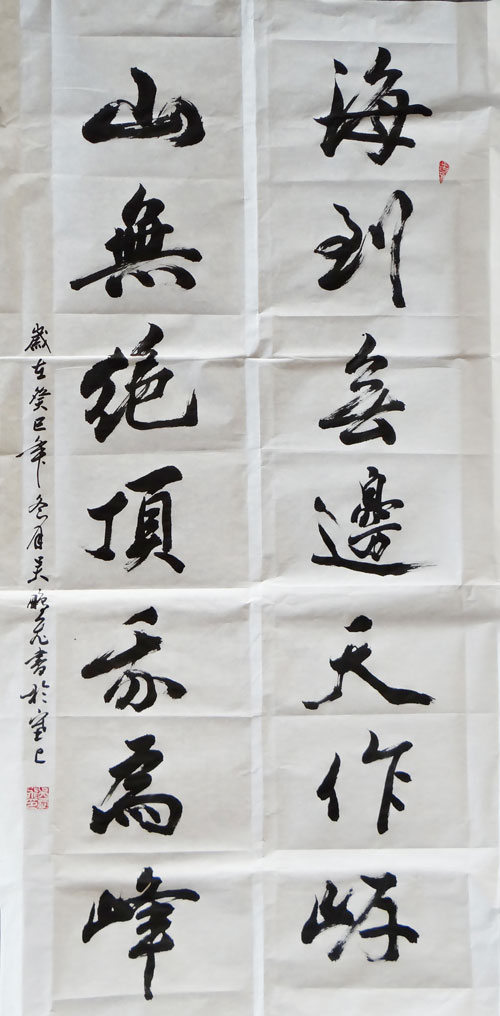 海到無邊天作岸
山無絶頂我為峰
歲在癸巳年冬月吴書於